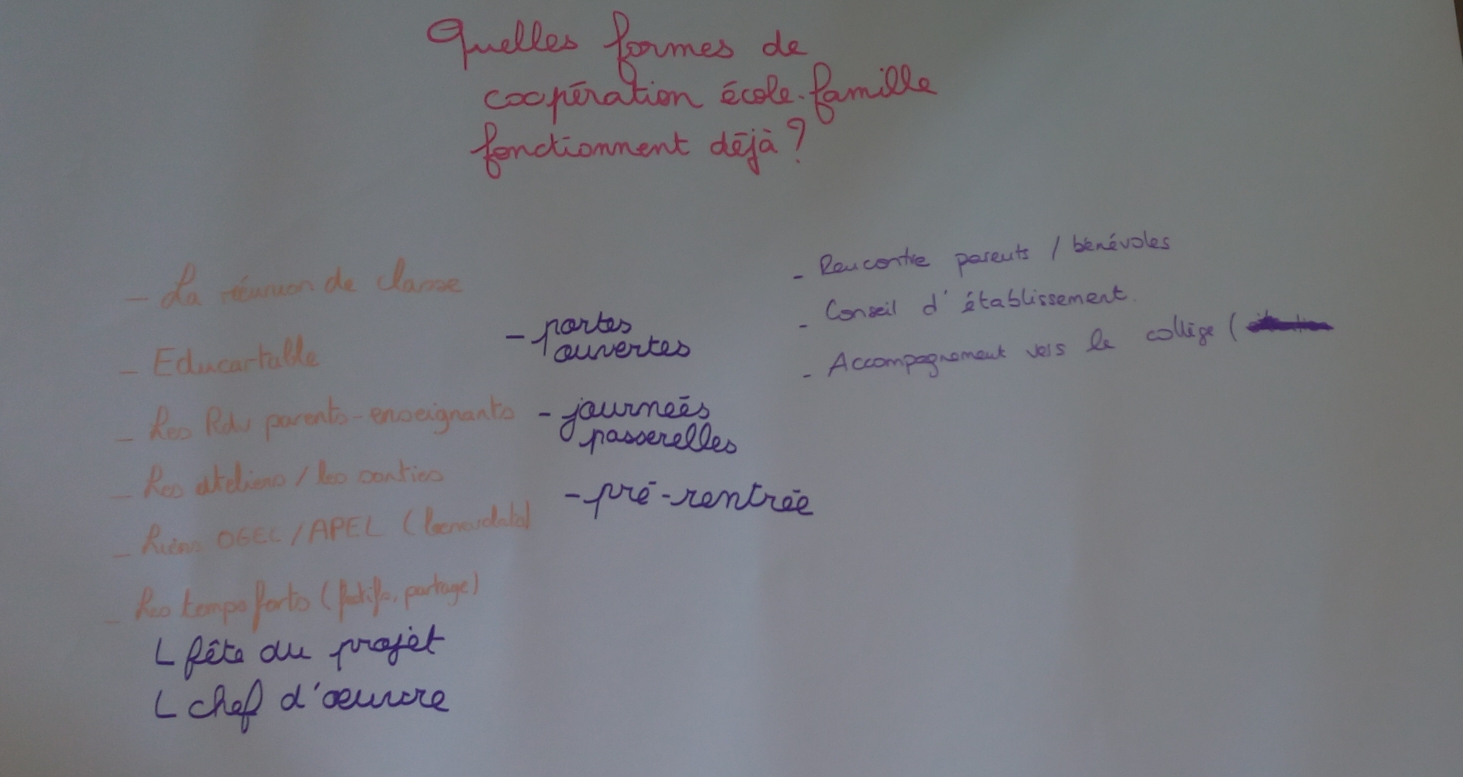 Quelles formes de
coopération école-famille
fonctionnent déjà ?
- La réunion de classe
- Educartable
- Les Rdv parents-enseignants
- Les ateliers / les sorties
- Réunions OGEC / APEL (bénévolat)
- Les temps forts (festifs, partage)
L fête du projet
L chef d'œuvre
- portes
ouvertes
- journeés
passerelles
- pré-rentrée
- Rencontre parents / bénévoles
- Conseil d'établissement.
- Accompagnement vers le collège (